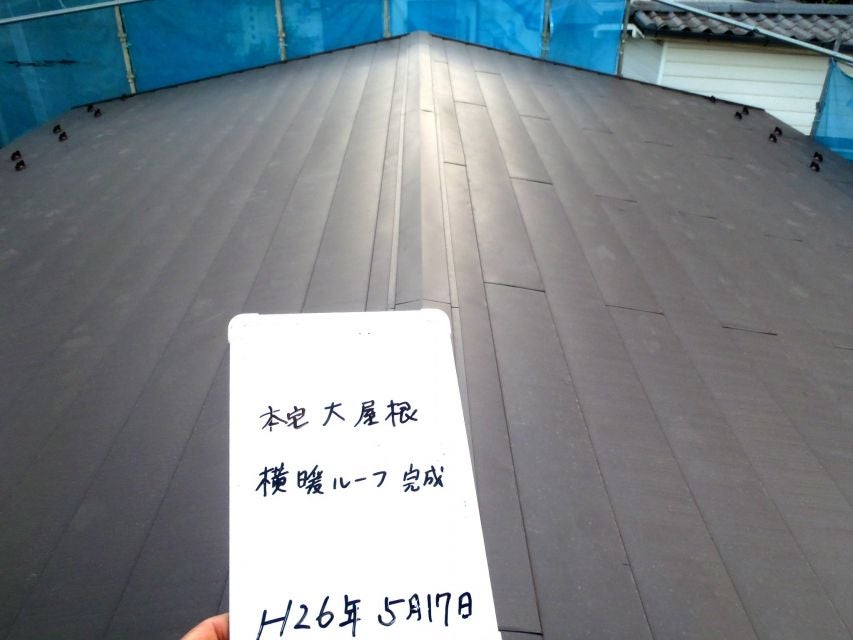 本宅 大屋根
横暖ルーフ 完成
H26年 5月17日